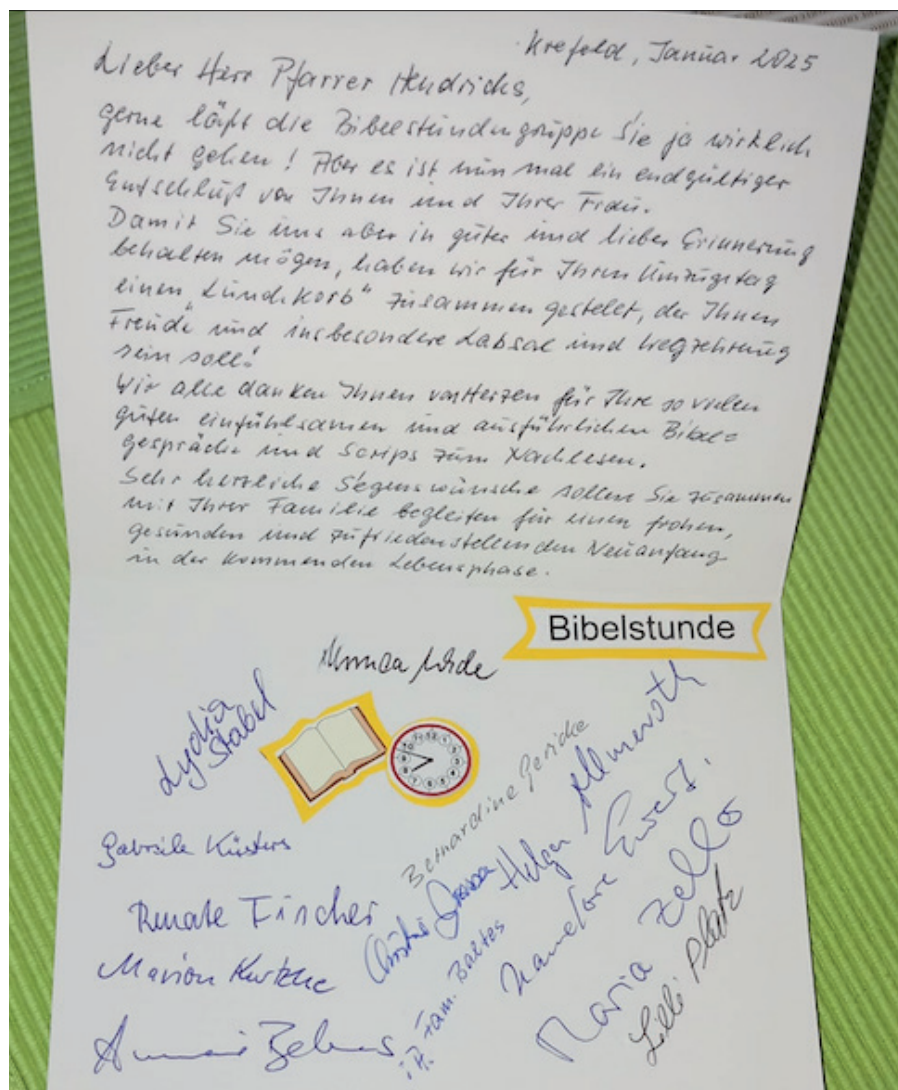 Krefeld, Januar 2025
Lieber Herr Pfarrer Hendricks,
gerne läßt die Bibelstundengruppe Sie ja wirklich
nicht gehen! Aber es ist nun mal ein endgültiger
Entschluß von Ihnen und Ihrer Frau.
Damit Sie uns aber in guter und lieber Erinnerung
behalten mögen, haben wir für Ihren Umzugstag
einen „Lunchkorb“ zusammen gestellt, der Ihnen
Freude und insbesondere Labsal und Wegzehrung
sein soll!
Wir alle danken Ihnen von Herzen für Ihre so vielen
guten einfühlsamen und ausführlichen Bibel=
gespräche und Scrips zum Nachlesen.
Sehr herzliche Segenswünsche sollen Sie zusammen
mit Ihrer Familie begleiten für einen frohen,
gesunden und zufriedenstellenden Neuanfang
in der kommenden Lebensphase.
Bibelstunde
Lydia
Stabel
Bernardine Gericke
Helga
Gabriele Küsters
Renate Fincher
Marion
i.A. Fam. Baltes
Hannelore Ewert.
Maria Zello
Lilli Platz